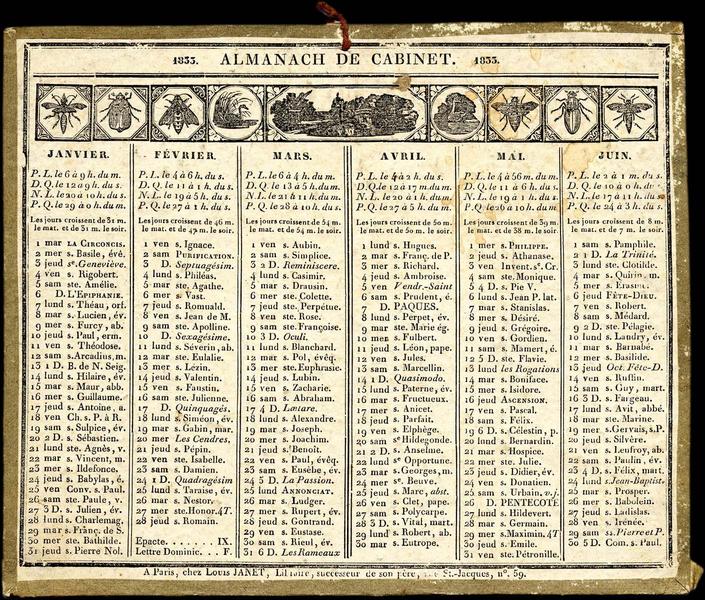 1833. ALMANACH DE CABINET. 1833.
JANVIER.
P. L. le 6 à 9 h. du m.
D. Q. le 12 à 9 h. du s.
N. L. le 20 à 10 h. du s.
P. Q. le 29 à 0 h. du m.
Les jours croissent de 31 m.
le mat. et de 31 m. le soir.
1 mar LA CIRCONCIS.
2 mer s. Basile, évê.
3 jeud se. Geneviève.
4 ven s. Rigobert.
5 sam ste. Amélie.
6 D. L'EPIPHANIE.
7 lund s. Théau, orf.
8 mar s. Lucien, év.
9 mer s. Furcy, ab.
10 jeud s. Paul, erm.
11 ven s. Théodose.
12 sam s. Arcadius, m.
13 1 D. B. de N. Seig.
14 lund s. Hilaire, év.
15 mar s. Maur, abb.
16 mer s. Guillaume.
17 jeud s. Antoine, a.
18 ven Ch. s. P. à R.
19 sam s. Sulpice, év.
20 2 D. s. Sébastien.
21 lund ste. Agnès, v.
22 mar s. Vincent, m.
23 mer s. Ildefonce.
24 jeud s. Babylas, é.
25 ven Conv. s. Paul.
26 sam ste. Paule, v.
27 3 D. s. Julien, év.
28 lund s. Charlemag.
29 mar s. Franç. de S.
30 mer ste. Bathilde.
31 jeud s. Pierre Nol.
FÉVRIER.
P. L. le 4 à 6 h. du s.
D. Q. le 11 à 1 h. du s.
N. L. le 19 à 5 h. du s.
P. Q. le 27 à 1 h. du s.
Les jours croissent de 46 m.
le mat. et de 47 m. le soir.
1 ven s. Ignace.
2 sam PURIFICATION.
3 D. Septuagésim.
4 lund s. Philéas.
5 mar ste. Agathe.
6 mer s. Vast.
7 jeud s. Romuald.
8 ven s. Jean de M.
9 sam ste. Apolline.
10 D. Sexagésime.
11 lund s. Séverin, ab.
12 mar ste. Eulalie.
13 mer s. Lézin.
14 jeud s. Valentin.
15 ven s. Faustin.
16 sam ste. Julienne.
17 D. Quinquagés.
18 lund s. Siméon, év.
19 mar s. Gabin, mar.
20 mer Les Cendres.
21 jeud s. Pépin.
22 ven ste. Isabelle.
23 sam s. Damien.
24 1 D. Quadragésim
25 lund s. Taraise, év.
26 mar s. Nestor.
27 mer ste. Honor. 4T.
28 jeud s. Romain.
Epacte. . . . . . . IX.
Lettre Dominic. . . F.
MARS.
P. L. le 6 à 4 h. du m.
D. Q. le 13 à 5 h. du m.
N. L. le 21 à 11 h. du m.
P. Q. le 28 à 10 h. du s.
Les jours croissent de 54 m.
le mat. et de 54 m. le soir.
1 ven s. Aubin.
2 sam s. Simplice.
3 2 D. Reminiscere.
4 lund s. Casimir.
5 mar s. Drausin.
6 mer ste. Colette.
7 jeud ste. Perpétue.
8 ven ste. Rose.
9 sam ste. Françoise.
10 3 D. Oculi.
11 lund s. Blanchard.
12 mar s. Pol, évêq.
13 mer ste. Euphrasie.
14 jeud s. Lubin.
15 ven s. Zacharie.
16 sam s. Abraham.
17 4 D. Lœtare.
18 lund s. Alexandre.
19 mar s. Joseph.
20 mer s. Joachim.
21 jeud s. Benoît.
22 ven s. Paul, évêq.
23 sam s. Eusèbe, év.
24 5 D. La Passion.
25 lund ANNONCIAT.
26 mar s. Ludger.
27 mer s. Rupert, év.
28 jeud s. Gontrand.
29 ven s. Eustase.
30 sam s. Rieul, év.
31 6 D. Les Rameaux
AVRIL.
P. L. le 4 à 2 h. du s.
D. Q. le 12 à 17 m. du m.
N. L. le 20 à 1 h. du m.
P. Q. le 27 à 5 h. du m.
Les jours croissent de 50 m.
le mat. et de 50 m. le soir.
1 lund s. Hugues.
2 mar s. Franç. de P.
3 mer s. Richard.
4 jeud s. Ambroise.
5 ven Vendr.-Saint
6 sam s. Prudent, é.
7 D. PAQUES.
8 lund s. Perpet, év.
9 mar ste. Marie ég.
10 mer s. Fulbert.
11 jeud s. Léon, pape.
12 ven s. Jules.
13 sam s. Marcellin.
14 1 D. Quasimodo.
15 lund s. Paterne, év.
16 mar s. Fructueux.
17 mer s. Anicet.
18 jeud s. Parfait.
19 ven s. Elphège.
20 sam se Hildegonde.
21 2 D. s. Anselme.
22 lund se Opportune.
23 mar s. Georges, m.
24 mer se. Beuve.
25 jeud s. Marc, abst.
26 ven s. Clet, pape.
27 sam s. Polycarpe.
28 3 D. s. Vital, mart.
29 lund s. Robert, ab.
30 mar s. Eutrope.
MAI.
P. L. le 4 à 56 m. du m.
D. Q. le 11 à 6 h. du s.
N. L. le 19 à 1 h. du s.
P. Q. le 26 à 10 h. du m.
Les jours croissent de 39 m.
le mat. et de 38 m. le soir.
1 mer s. PHILIPPE.
2 jeud s. Athanase.
3 ven Invent. se. Cr.
4 sam ste. Monique.
5 4 D. s. Pie V.
6 lund s. Jean P. lat.
7 mar s. Stanislas.
8 mer s. Désiré.
9 jeud s. Grégoire.
10 ven s. Gordien.
11 sam s. Mamert, é.
12 5 D. ste. Flavie.
13 lund les Rogations
14 mar s. Boniface.
15 mer s. Isidore.
16 jeud ASCENSION.
17 ven s. Pascal.
18 sam s. Félix.
19 6 D. s. Célestin, p.
20 lund s. Bernardin.
21 mar s. Hospice.
22 mer ste. Julie.
23 jeud s. Didier, év.
24 ven s. Donatien.
25 sam s. Urbain, v.j.
26 D. PENTECOTE
27 lund s. Hildevert.
28 mar s. Germain.
29 mer s. Maximin. 4T
30 jeud s. Emile.
31 ven ste. Pétronille.
JUIN.
P. L. le 2 à 1 m. du s.
D. Q. le 10 à 0 h. du
N. L. le 17 à 11 h. du
P. Q. le 24 à 3 h. du s.
Les jours croissent de 8 m.
le mat. et de 7 m. le soir.
1 sam s. Pamphile.
2 1 D. La Trinité.
3 lund ste. Clotilde.
4 mar s. Quirin, m.
5 mer s. Erasme.
6 jeud FÊTE-DIEU.
7 ven s. Robert.
8 sam s. Médard.
9 2 D. ste. Pélagie.
10 lund s. Landry, év.
11 mar s. Barnabé.
12 mer s. Basilide.
13 jeud Oct. Fête-D.
14 ven s. Ruffin.
15 sam s. Guy, mart.
16 3 D. s. Fargeau.
17 lund s. Avit, abbé.
18 mar ste. Marine.
19 mer s. Gervais, s. P.
20 jeud s. Silvère.
21 ven s. Leufroy, ab.
22 sam s. Paulin, év.
23 4 D. s. Félix, mart.
24 lund s. Jean-Baptist.
25 mar s. Prosper.
26 mer s. Babolein.
27 jeud s. Ladislas.
28 ven s. Irénée.
29 sam ss. Pierre et P.
30 5 D. Com. s. Paul.
A Paris, chez Louis JANET, Libraire, successeur de son père, rue St.-Jacques, n°. 59.